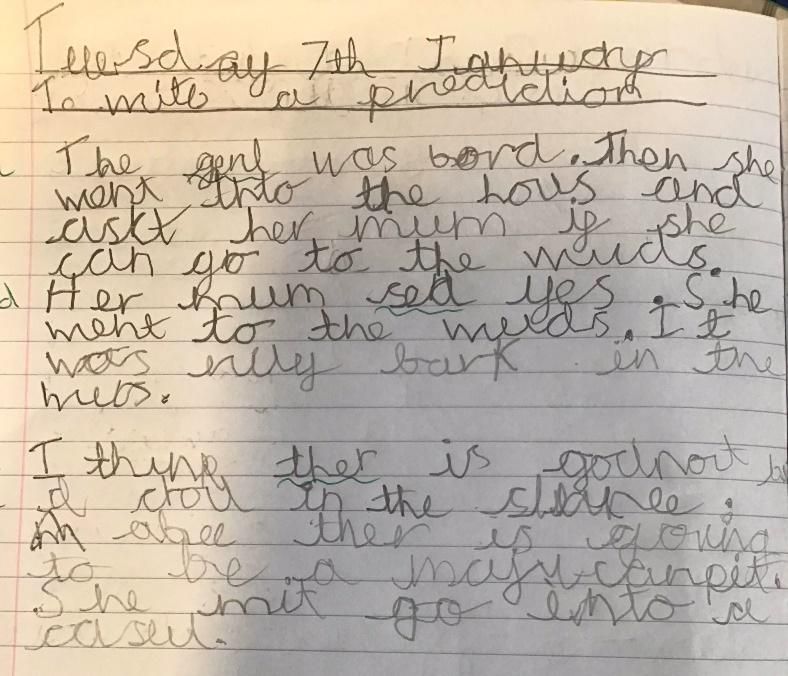 Tuersday 7th January
To write a predidion
The gerl was bord. Then she
went into the hous and
askt her mum if she
can go to the wuds.
Her mum sed yes. She
went to the wuds. It
was rilly bark in the
wubs.
I thinp ther is godnot
a doll in the
ther is gowing
to be a majucarpit.
She mit go into a
casul.